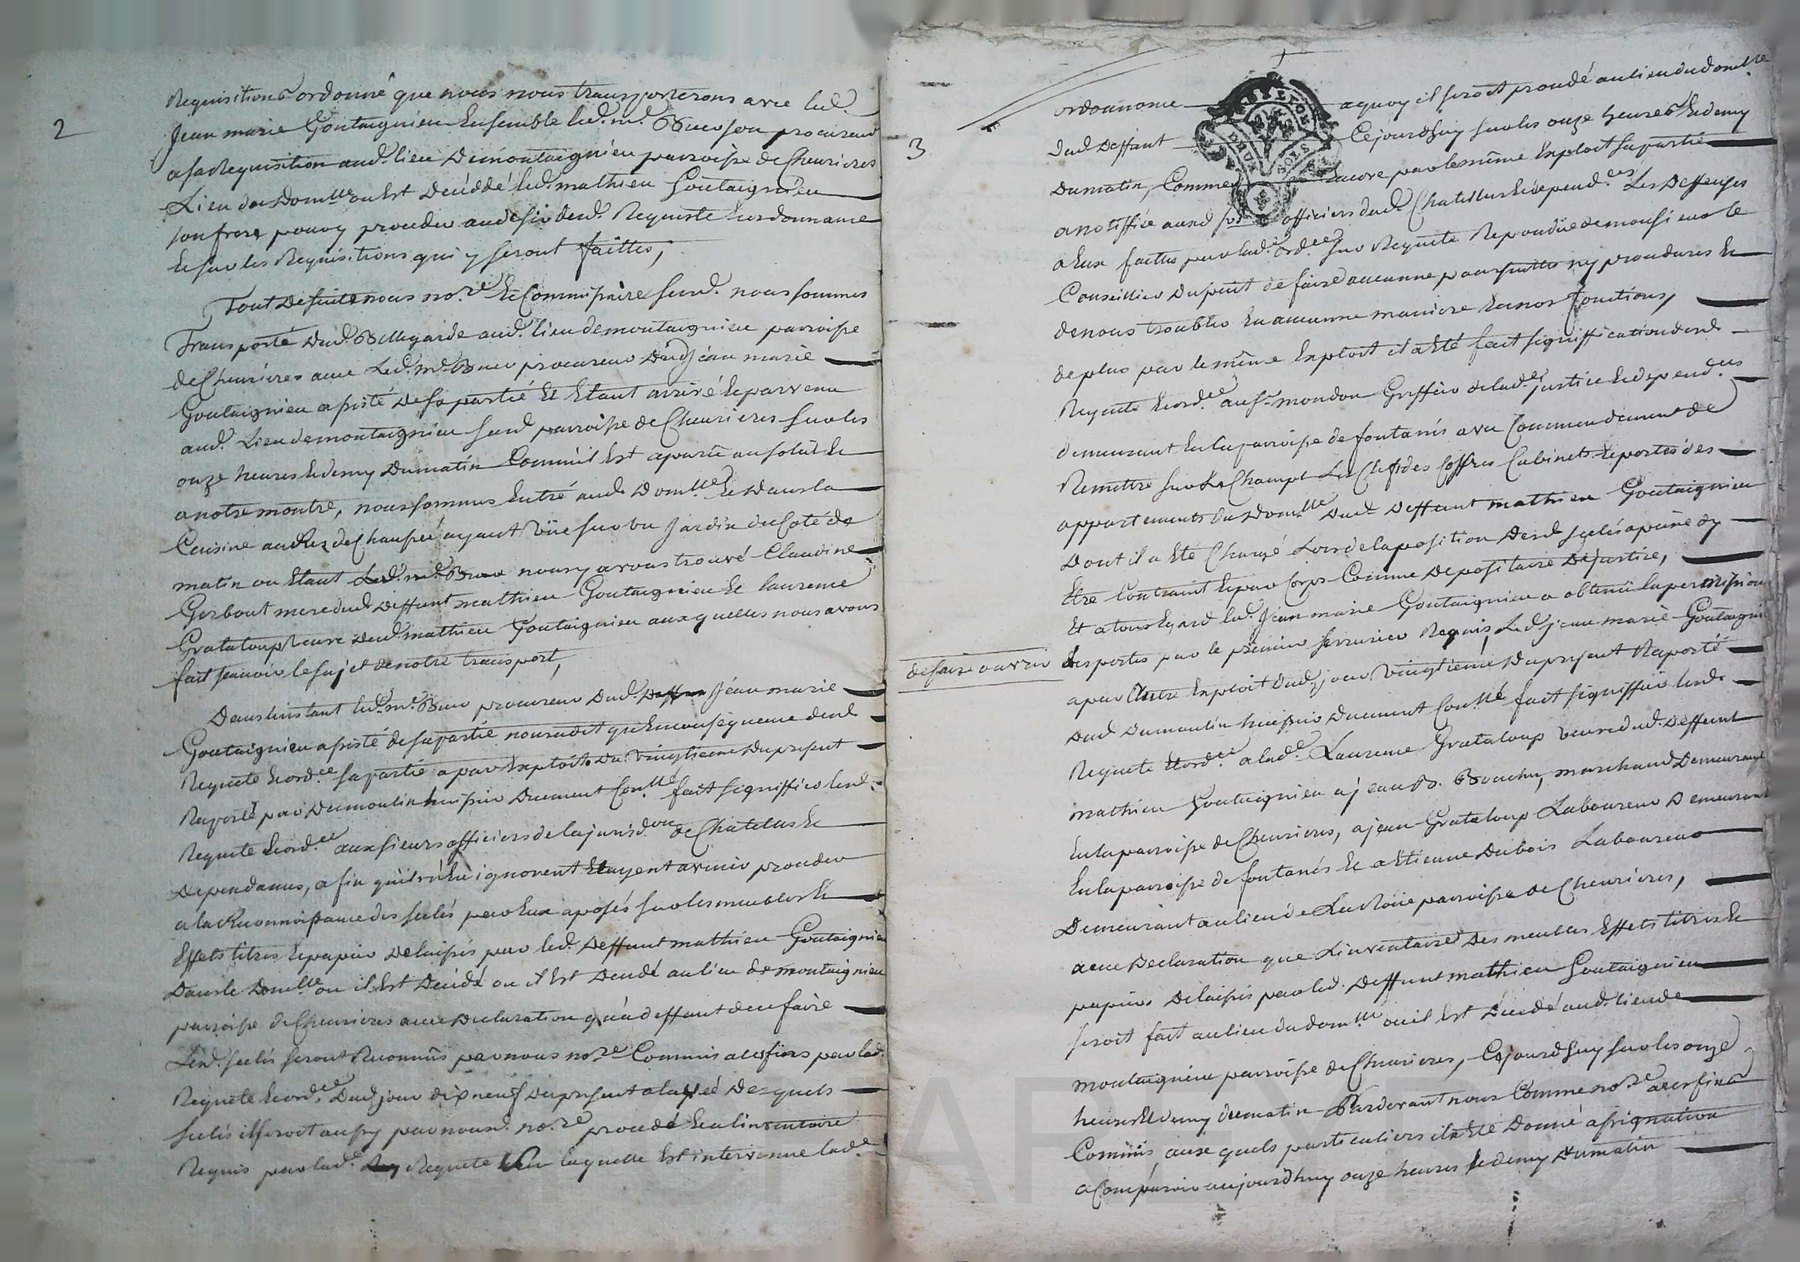 2
Requisitions ordonné que nous nous transporterons avec led.
Jean marie Goutaignieu Ensemble led. me. procureur
a sa Requisition aud. lieu De montaignieu parroisse de Cheurieres
Lieu du Domlle ou Est Decédé led. mathieu Goutaignieu
son frere pour y proceder au desir de lad. Requeste & ordonnance
& sur les Requisitions qui y seront faittes,
Tout De suite nous no.re & Commissaire susd. nous sommes
Transporté dud. Bellegarde aud. lieu de montaignieu parroisse
de Cheurieres avec Led. me. procureur Dud. Jean marie
Goutaignieu assisté De sa partie Et Etant arrivé & parvenu
aud. Lieu de montaignieu susd. parroisse de Cheurieres sur les
onze heures & demy Du matin Comme il Est aparu au soleil &
a notre montre, nous sommes Entré aud. Domlle & Dans la
Cuisine au Rez de Chaussée ayant Vüe sur un Jardin du Coté de
matin ou Etant Led. me. nous y avons trouvé Claudine
mere dud. Deffunt mathieu Goutaignieu & laurence
Grataloup veuve dud. mathieu Goutaignieu auxquelles nous avons
fait scavoir le sujet de notre transport,
Dans linstant led. me. procureur Dud. Jean marie
Goutaignieu assisté de sa partie nous a dit qu'En consequence de lad.
Requete & ord.ce sa partie a par Exploit Du Vingtieme Du present
Raporté par Dumoulin huissier Duement Conllé fait signiffier lesd.
Requete & ord.ce aux sieurs officiers de la jurisd.on de Chatelus &
Dependances, afin qu'ils n'En ignorent & ayent a venir proceder
a la Reconnoissance des scelés par Eux aposés sur les meubles &
Effets titres & papiers Delaissés par led. Deffunt mathieu Goutaignieu
Dans le Domlle ou il Est Decédé ou il Est Decedé au lieu de montaignieu
parroisse de Cheurieres avec Declaration qu'a deffaut de ce faire
Lesd. scelés seront Reconnus par nous no.re Commis a ces fins par lad.
Requete & ord.ce Dud. jour dix neuf Du present a la Desquels
scelés il seroit aussy par nousd. no.re procedé & a linventaire
Requis par lad. Requete sur laquelle Est intervenue lad.
3
ordonnance a quoy il seroit procedé au lieu du domlle
dud. Deffunt Cejourdhuy sur les onze heures & demy
Du matin, Comme Encore par le même Exploit sa partie
a notiffié auxd. srs. officiers dud. Chatelus & depend.ces Les Deffenses
a Eux faittes par lad. ord.ce sur Requete Repondüe de monsieur le
Conseiller Dupuit de faire aucunne poursuittes ny procedures &
de nous troubler En aucunne maniere En nos fonctions,
de plus par le même Exploit il a Eté fait signiffication desd.
Requete & ord.ce au sr. mondon Greffier de lad. justice & depend.ces
demeurant En la parroisse de fontanés avec Commandement de
Remettre sur Le Champ Les Clefs des Coffres Cabinets & portes des
appartements du Domlle Dud. Deffunt mathieu Goutaignieu
Dont il a Eté Chargé Lors de la position Desd. scelés a peine d'y
Etre Contraint & par Corps Comme Depositaire De justice,
Et a tous Egard led. Jean marie Goutaignieu a obtenu la permission
de faire ouvrir les portes par le premier serrurier Requis, Led. jean marie Goutaignieu
a par autre Exploit dud. jour Vingtieme Du present Raporté
dud. Dumoulin huissier Duement Conllé fait signiffier lesd.
Requete & ord.ce a lad. Laurence Grataloup veuve dud. Deffunt
mathieu Goutaignieu a jean Bte. Bouchu, marchand Demeurant
En la parroisse de Cheurieres, a jean Grataloup Laboureur Demeurant
En la parroisse de fontanés & a Etienne Dubois Laboureur
Demeurant au lieu de parroisse de Cheurieres,
avec Declaration que L'inventaire Des meubles Effets titres &
papiers Delaissés par led. Deffunt mathieu Goutaignieu
seroit fait au lieu du domlle ou il Est Decédé aud. lieu de
montaignieu parroisse de Cheurieres, Cejourdhuy sur les onze
heures & demy du matin Pardevant nous Comme no.re a ces fins
Commis auxquels particuliers il a Eté Donné assignation
a Comparoir aujourdhuy onze heures & demy Du matin